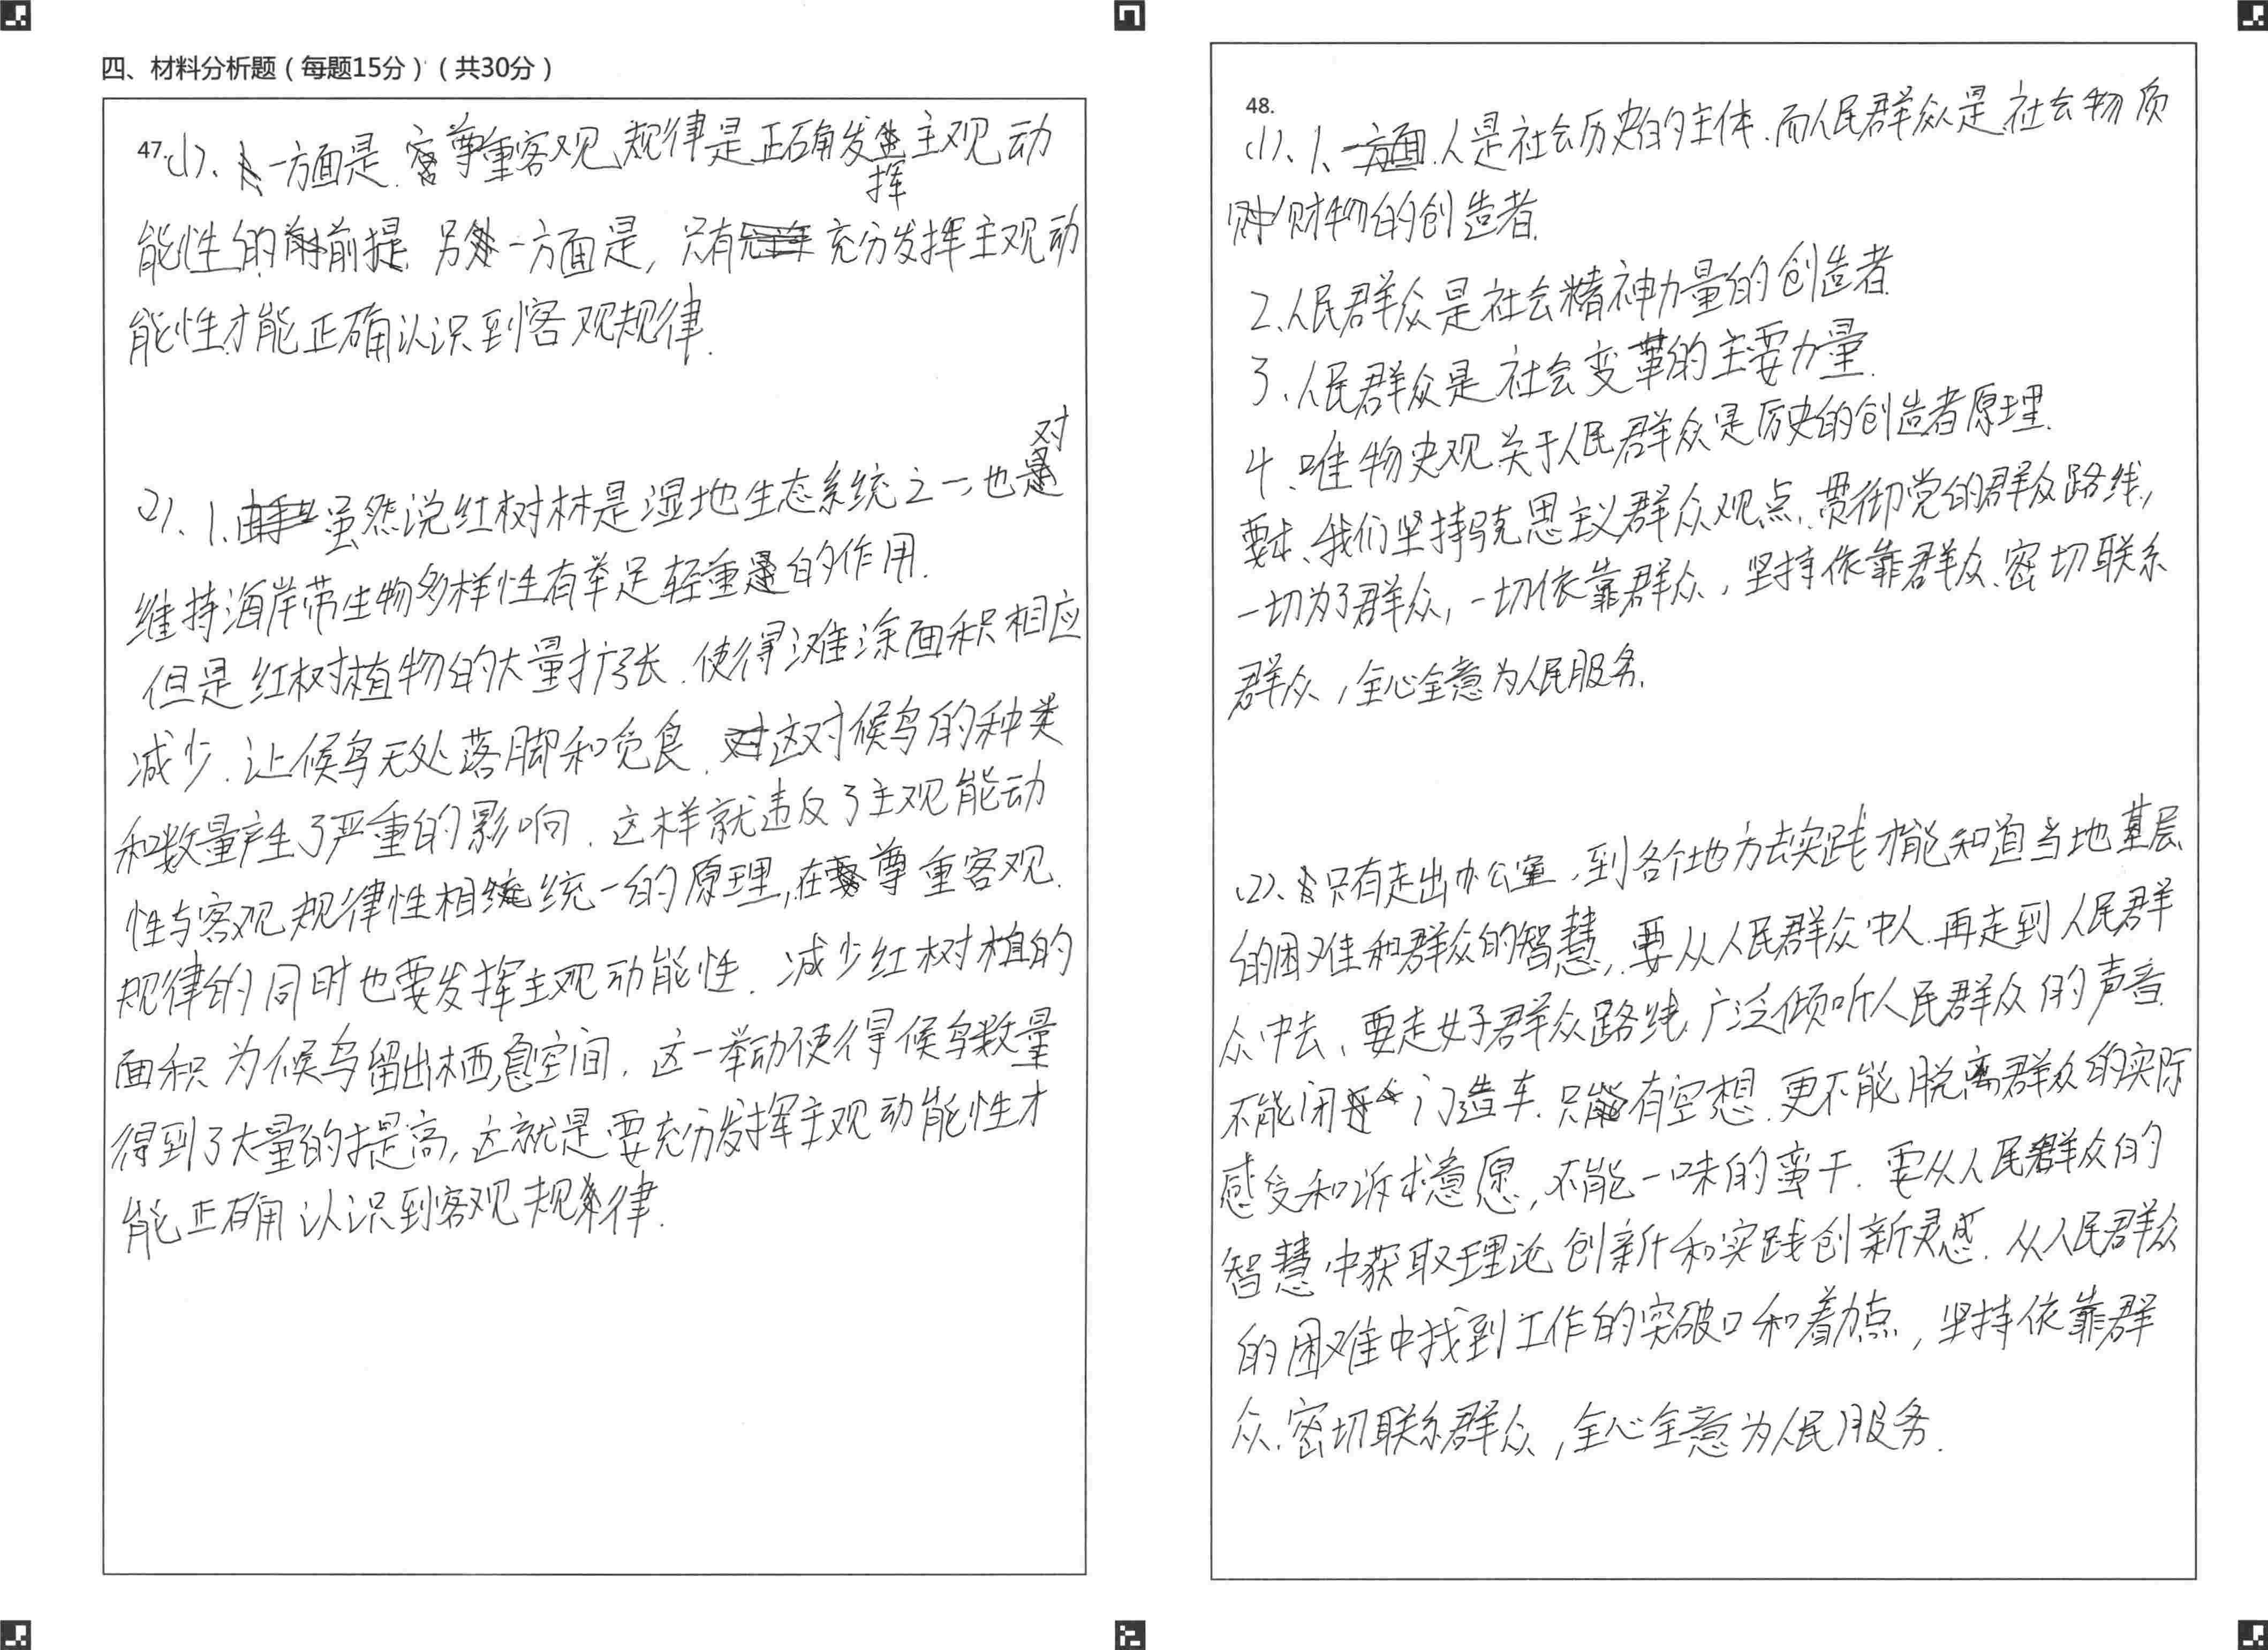 四、材料分析题（每题15分）（共30分）
47.(1)、一方面是.尊重客观规律是正确发挥主观动
能性的前提.另一方面是,只有充分发挥主观动
能性才能正确认识到客观规律.
2)、1.虽然说红树林是湿地生态系统之一,也对
维持海岸带生物多样性有举足轻重的作用.
但是红树植物的大量扩张.使得滩涂面积相应
减少.让候鸟无处落脚和觅食.这对候鸟的种类
和数量产生了严重的影响.这样就违反了主观能动
性与客观规律性相统一的原理,在尊重客观.
规律的同时也要发挥主观动能性.减少红树植的
面积为候鸟留出栖息空间.这一举动使得候鸟数量
得到了大量的提高,这就是要充分发挥主观动能性才
能正确认识到客观规律.
48.
(1)、1、人是社会历史的主体.而人民群众是社会物质
财物的创造者.
2、人民群众是社会精神力量的创造者.
3、人民群众是社会变革的主要力量.
4、唯物史观关于人民群众是历史的创造者原理.
要求、我们坚持马克思主义群众观点、贯彻党的群众路线,
一切为了群众,一切依靠群众,坚持依靠群众、密切联系
群众,全心全意为人民服务.
(2)、只有走出办公室,到各个地方去实践才能知道当地基层
的困难和群众的智慧,要从人民群众中人.再走到人民群
众中去、要走好群众路线.广泛倾听人民群众的声音.
不能闭门造车.只有空想.更不能脱离群众的实际
感受和诉求意愿,不能一味的蛮干.要从人民群众的
智慧中获取理论创新和实践创新灵感.从人民群众
的困难中找到工作的突破口和着力点,坚持依靠群
众.密切联系群众,全心全意为人民服务.